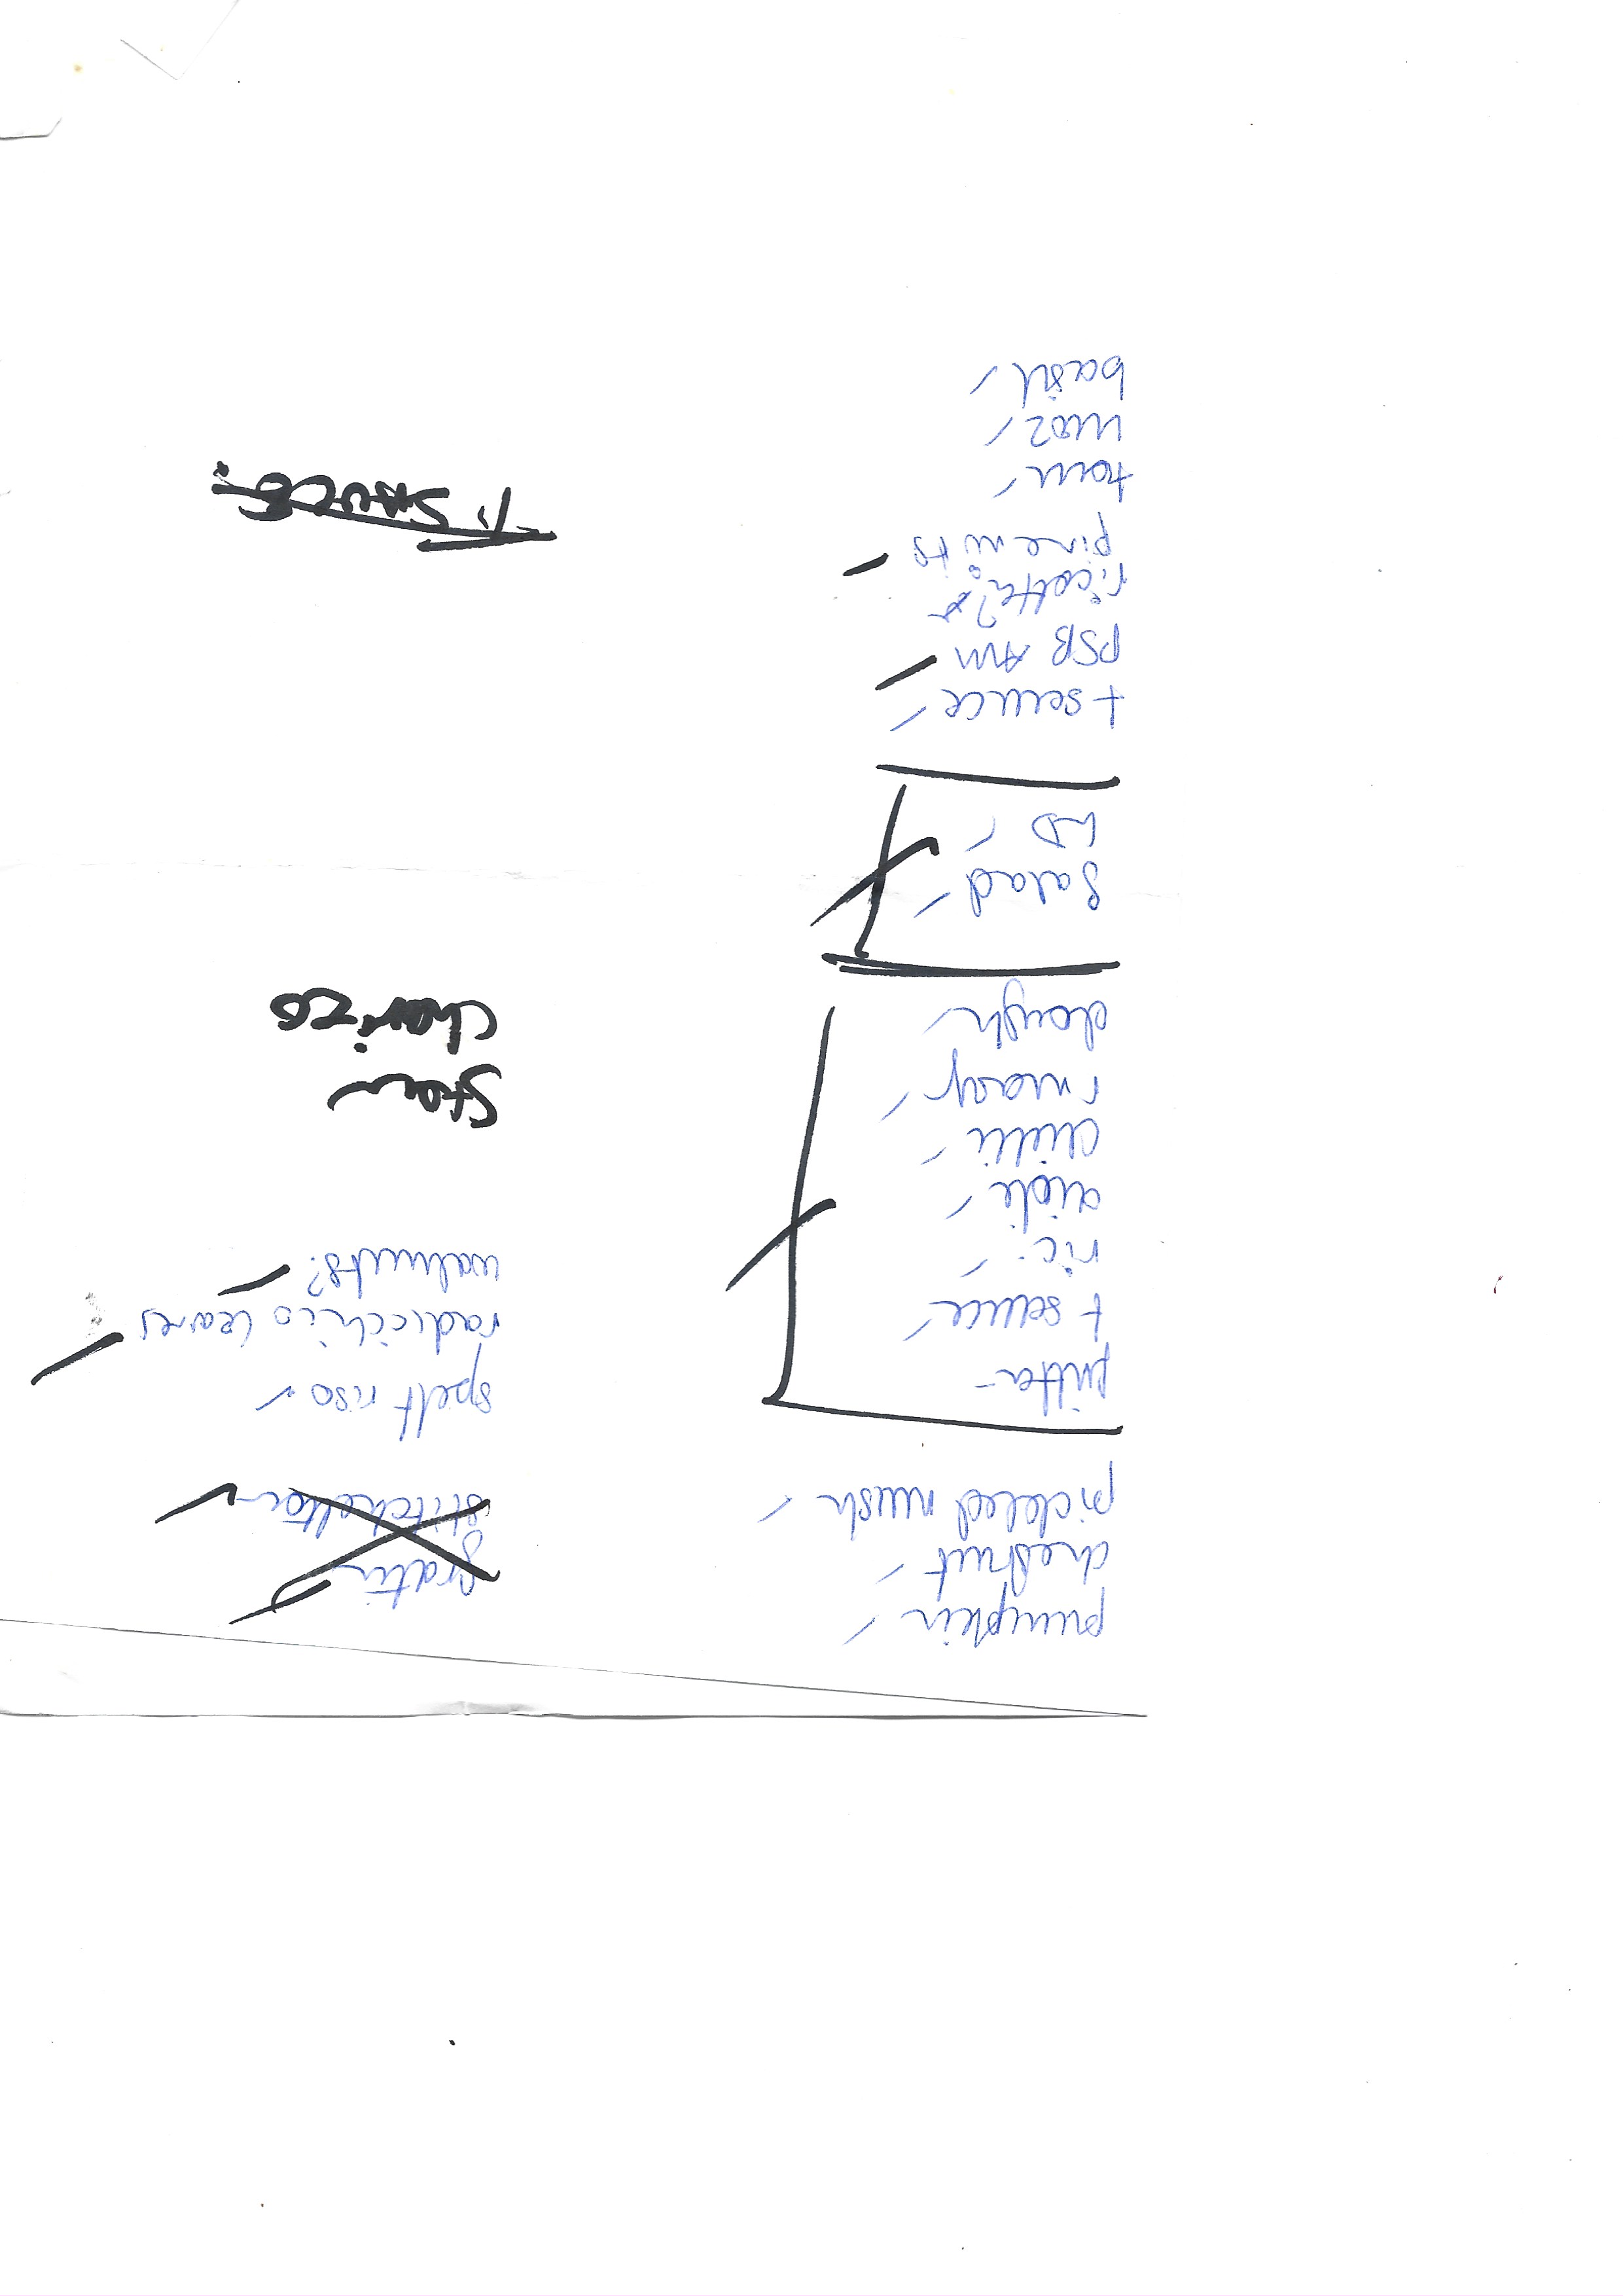 pumpkin
chestnut
pickled mush
pitta
+ sauce
ric.
aioli
chilli
r mary
dough
Salad
LD
+ sauce
PSB AM
ricotta?
pine nuts
tom
moz
basil
gratin
stitchelton
spelt riso
radicchio leaves
walnuts?
Stew
Chorizo
T. SAUCE